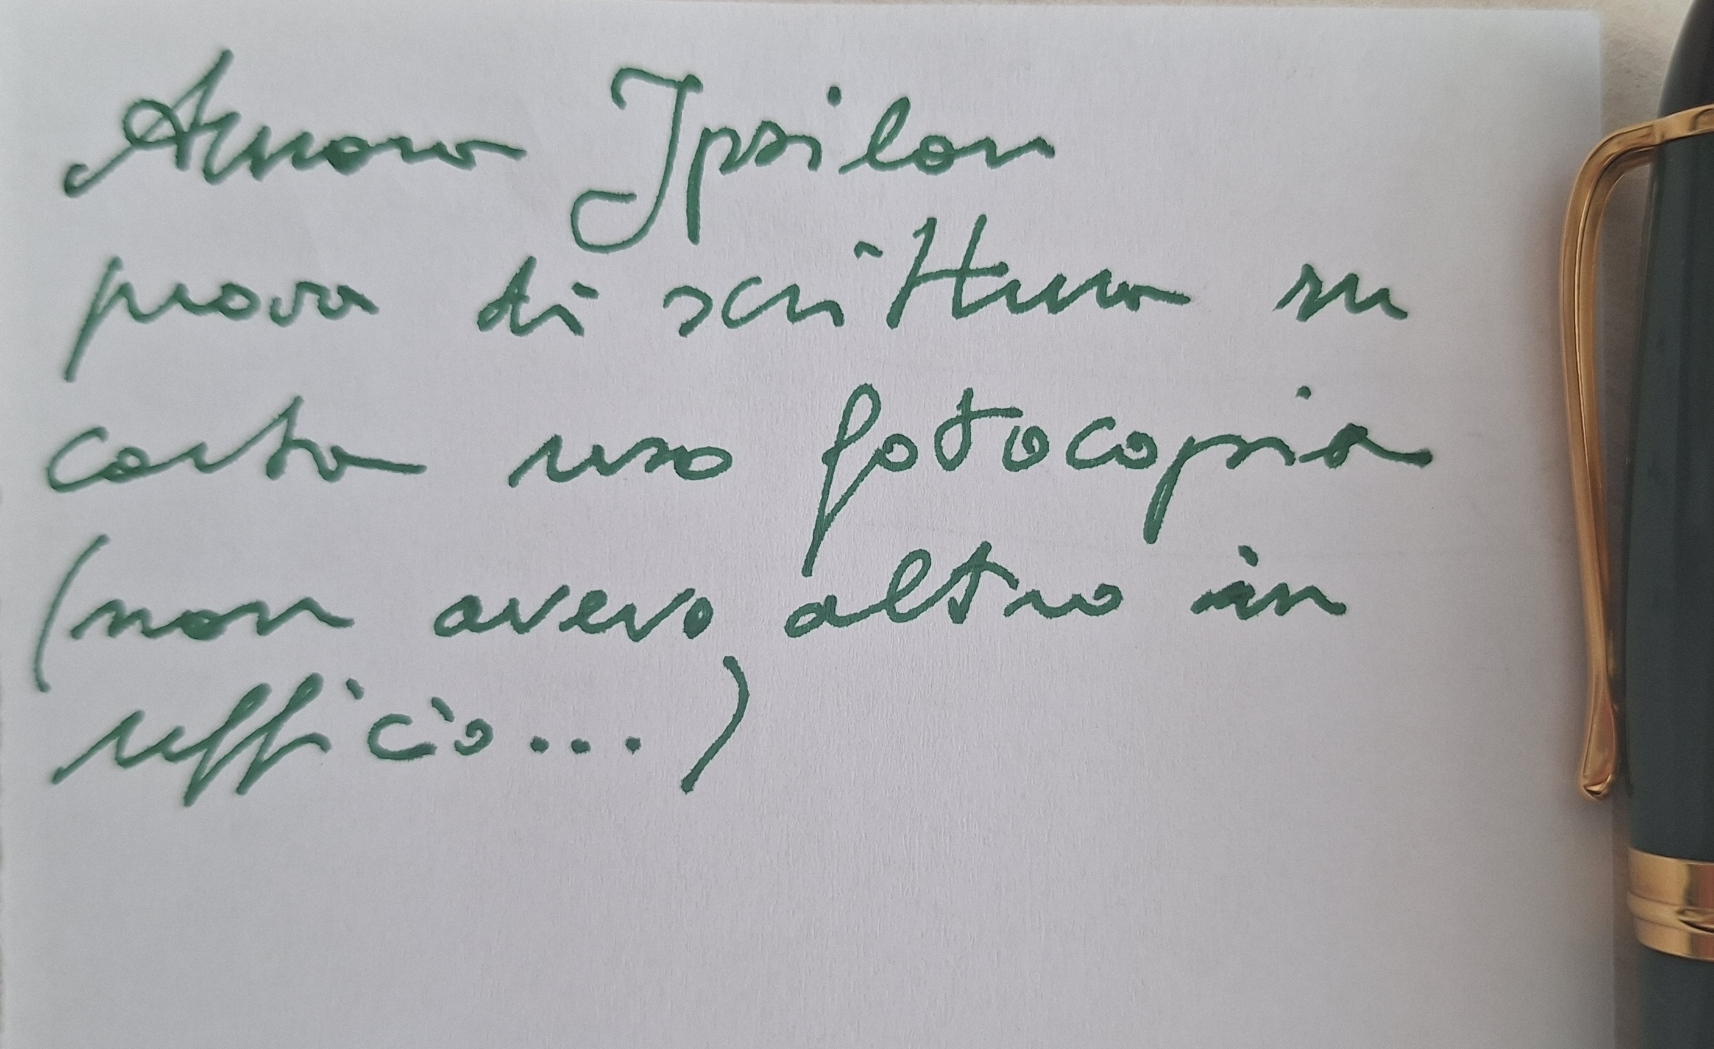 Aurora Ipsilon
prova di scrittura su
carta uso fotocopia
(non avevo altro in
ufficio...)